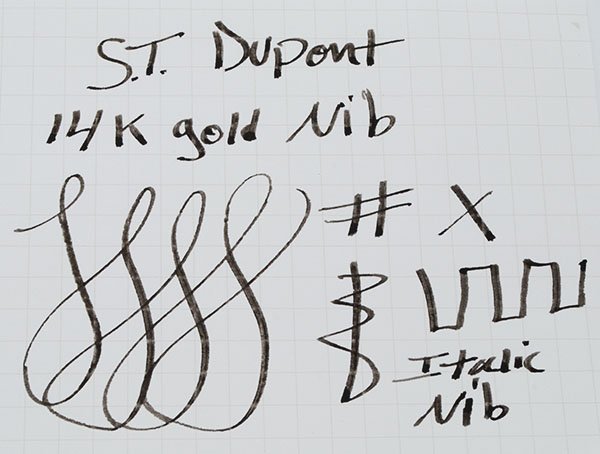 S.T. Dupont
14K gold Nib
# X
Italic
Nib